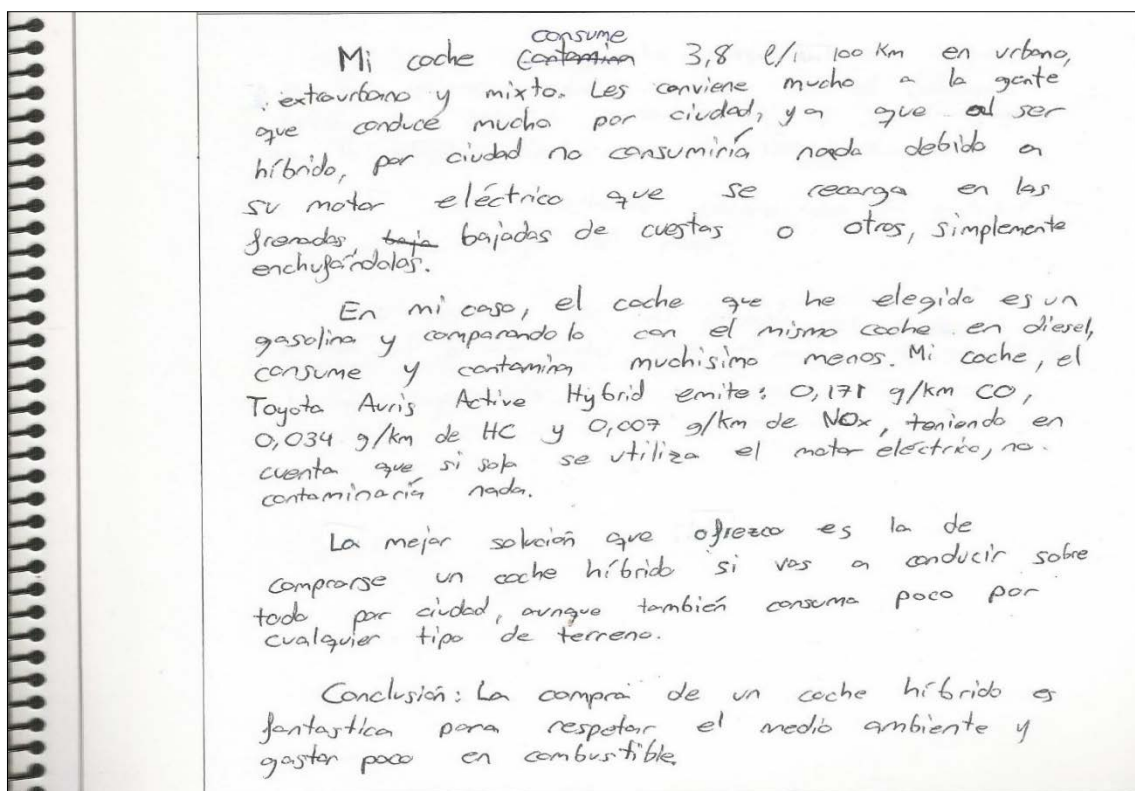 consume
Mi coche contamina 3,8 l/ 100 Km en urbano,
extraurbano y mixto. Les conviene mucho a la gente
que conduce mucho por ciudad, ya que al ser
híbrido, por ciudad no consumiría nada debido a
su motor eléctrico que se recarga en las
frenadas, baja bajadas de cuestas o otros, simplemente
enchufándolos.
En mi caso, el coche que he elegido es un
gasolina y comparandolo con el mismo coche en diesel,
consume y contamina muchisimo menos. Mi coche, el
Toyota Auris Active Hybrid emite: 0,171 g/km CO,
0,034 g/km de HC y 0,007 g/km de NOx, teniendo en
cuenta que si solo se utiliza el motor eléctrico, no
contaminaría nada.
La mejor solución que ofrezco es la de
comprarse un coche híbrido si vas a conducir sobre
todo por ciudad, aunque también consuma poco por
cualquier tipo de terreno.
Conclusión: La compra de un coche híbrido es
fantastica para respetar el medio ambiente y
gastar poco en combustible.